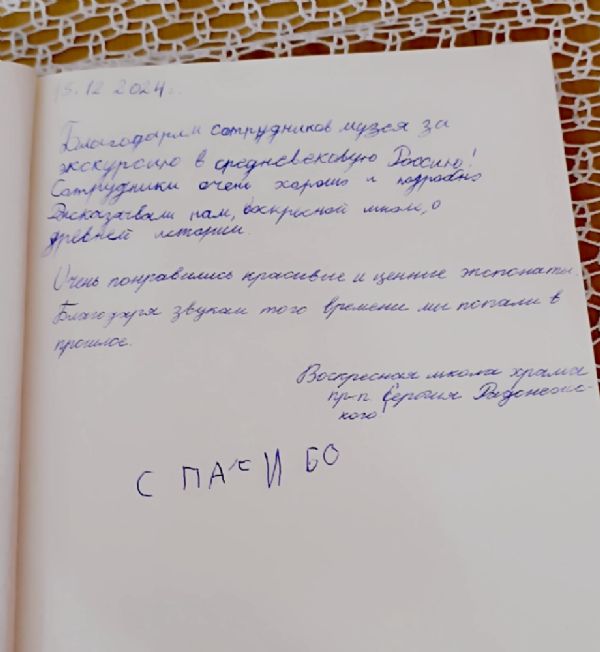 15.12 2024г.
Благодарим сотрудников музея за
экскурсию в средневековую Россию!
Сотрудники очень хорошо и подробно
рассказывали нам, воскресной школе, о
древней истории.
Очень понравились красивые и ценные экспонаты.
Благодаря звукам того времени мы попали в
прошлое.
Воскресная школа храма
пр-п. Сергия Радонежс-
кого!
С ПАСИ БО